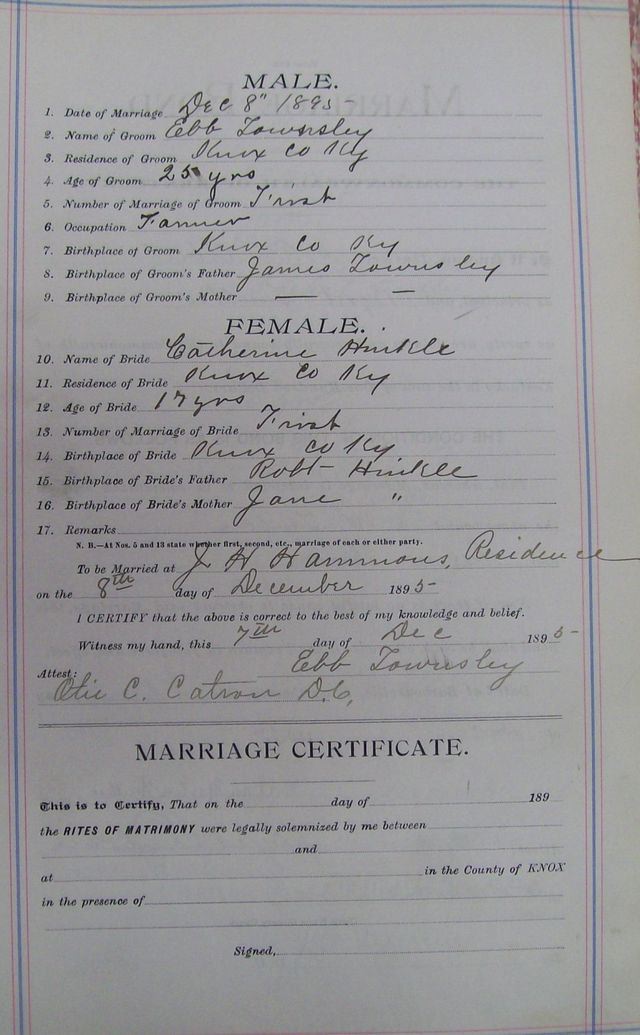 MALE.
1. Date of Marriage Dec 8" 1895
2. Name of Groom Ebb Townsley
3. Residence of Groom Knox Co Ky
4. Age of Groom 25 yrs
5. Number of Marriage of Groom First
6. Occupation Farmer
7. Birthplace of Groom Knox Co Ky
8. Birthplace of Groom's Father James Townsley
9. Birthplace of Groom's Mother — —
FEMALE.
10. Name of Bride Catherine Hinkle
11. Residence of Bride Knox Co Ky
12. Age of Bride 17 yrs
13. Number of Marriage of Bride First
14. Birthplace of Bride Knox Co Ky
15. Birthplace of Bride's Father Robt Hinkle
16. Birthplace of Bride's Mother Jane "
17. Remarks
N. B.—At Nos. 5 and 13 state whether first, second, etc., marriage of each or either party.
To be Married at J H Hammons, Residence
on the 8th day of December 1895
I CERTIFY that the above is correct to the best of my knowledge and belief.
Witness my hand, this 7th day of Dec 1895
Ebb Townsley
Attest:
C. Catron D.C.
MARRIAGE CERTIFICATE.
This is to Certify, That on the day of 189
the RITES OF MATRIMONY were legally solemnized by me between
and
at in the County of KNOX
in the presence of
Signed,